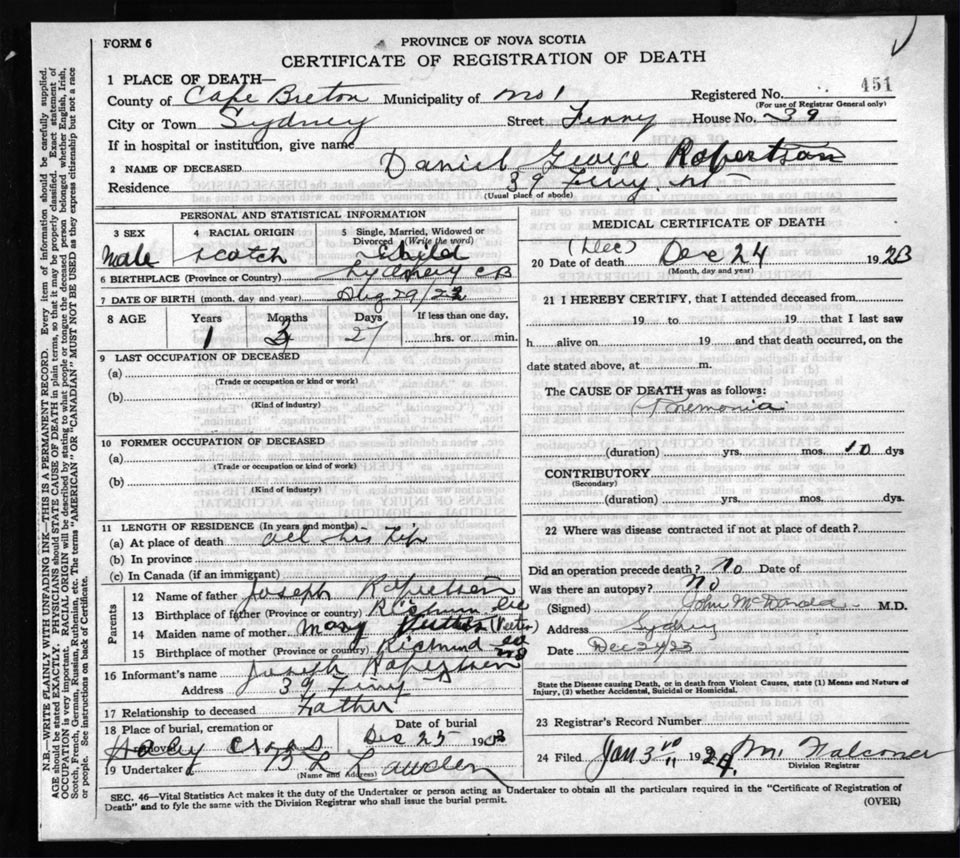 FORM 6
PROVINCE OF NOVA SCOTIA
CERTIFICATE OF REGISTRATION OF DEATH
451
1 PLACE OF DEATH—
County of Cape Breton Municipality of No 1 Registered No.
(For use of Registrar General only)
City or Town Sydney Street Ferry House No. 39
If in hospital or institution, give name
2 NAME OF DECEASED Daniel George Robertson
Residence 39 Ferry St
(Usual place of abode)
PERSONAL AND STATISTICAL INFORMATION
3 SEX Male
4 RACIAL ORIGIN Scotch
5 Single, Married, Widowed or Divorced (Write the word) Child
6 BIRTHPLACE (Province or Country) Sydney CB
7 DATE OF BIRTH (month, day and year) Aug 29/22
8 AGE Years Months Days If less than one day,
1 3 27 hrs. or min.
9 LAST OCCUPATION OF DECEASED
(a)
(Trade or occupation or kind or work)
(b)
(Kind of industry)
10 FORMER OCCUPATION OF DECEASED
(a)
(Trade or occupation or kind of work)
(b)
(Kind of industry)
11 LENGTH OF RESIDENCE (In years and months)
(a) At place of death all his life
(b) In province
(c) In Canada (if an immigrant)
Parents
12 Name of father Joseph Robertson
13 Birthplace of father (Province or country) Richmond
14 Maiden name of mother Mary
15 Birthplace of mother (Province or country) Richmond
16 Informant's name Joseph Robertson
Address 39 Ferry
17 Relationship to deceased Father
18 Place of burial, cremation or removal Holy Cross
Date of burial Dec 25 1923
19 Undertaker
(Name and Address)
MEDICAL CERTIFICATE OF DEATH
(Dec)
20 Date of death Dec 24 1923
(Month, day and year)
21 I HEREBY CERTIFY, that I attended deceased from
19 to 19 that I last saw
h alive on 19 and that death occurred, on the
date stated above, at m.
The CAUSE OF DEATH was as follows:
Pnemonia
(duration) yrs. mos. 10 dys
CONTRIBUTORY
(Secondary)
(duration) yrs. mos. dys.
22 Where was disease contracted if not at place of death?
Did an operation precede death? No Date of
Was there an autopsy? No
(Signed) John McDonald M.D.
Address Sydney
Date Dec 24/23
State the Disease causing Death, or in death from Violent Causes, state (1) Means and Nature of
Injury, (2) whether Accidental, Suicidal or Homicidal.
23 Registrar's Record Number
24 Filed Jan 3rd 1924
Division Registrar
SEC. 46—Vital Statistics Act makes it the duty of the Undertaker or person acting as Undertaker to obtain all the particulars required in the "Certificate of Registration of
Death" and to fyle the same with the Division Registrar who shall issue the burial permit.
(OVER)
N.B.—WRITE PLAINLY WITH UNFADING INK—THIS IS A PERMANENT RECORD. Every item of information should be carefully supplied.
AGE should be stated EXACTLY. PHYSICIANS should STATE CAUSE OF DEATH in plain terms, so that it may be properly classified. Exact statement of
OCCUPATION is very important. RACIAL ORIGIN will be described by stating to what people or tongue the deceased person belonged whether English, Irish,
Scotch, French, German, Russian, Ruthenian, etc. The terms "AMERICAN" OR "CANADIAN" MUST NOT BE USED as they express citizenship but not a race
or people. See instructions on back of Certificate.